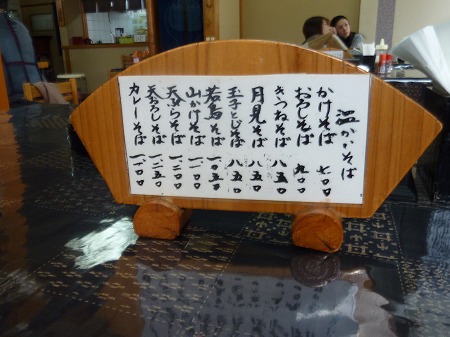 温かいそば
かけそば 七〇〇
おろしそば 九〇〇
きつねそば 八五〇
月見そば 八五〇
玉子とじそば 八五〇
若鳥そば 一〇五〇
山かけそば 一一〇〇
天ぷらそば 一二〇〇
天おろしそば 一二五〇
カレーそば 一一〇〇